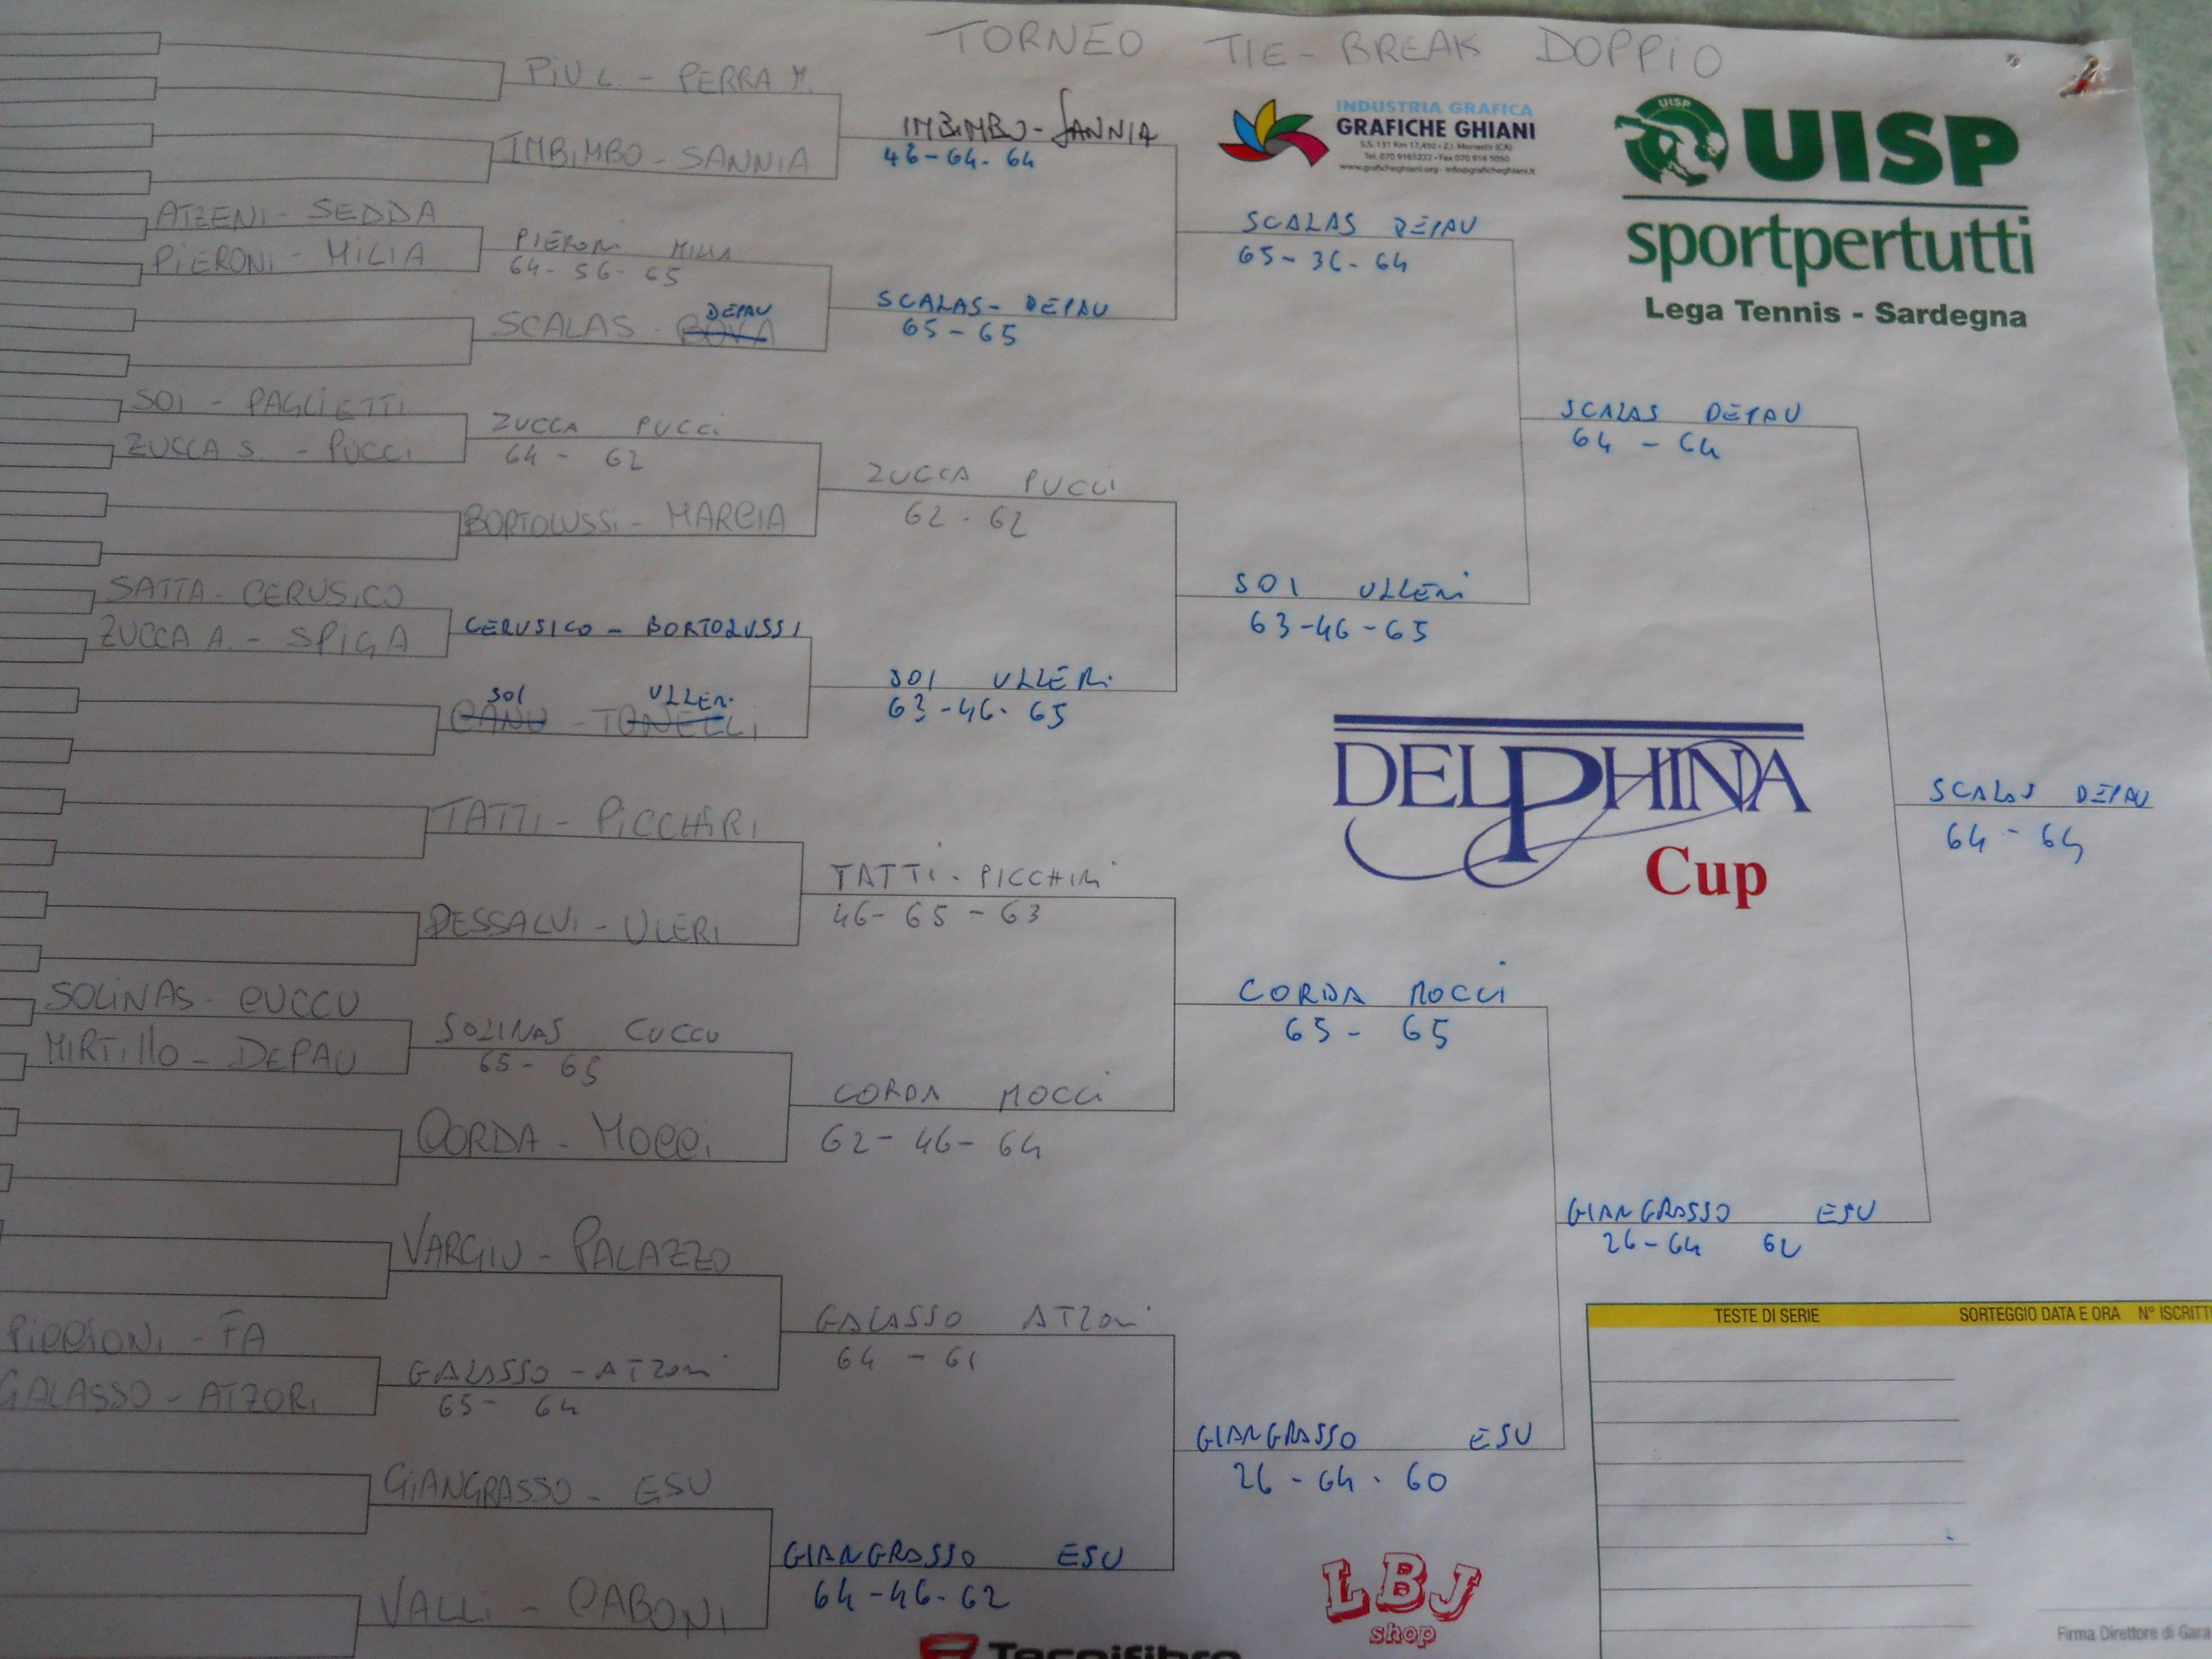 TORNEO TIE-BREAK DOPPIO
PIU L. - PERRA M.
IMBIMBO - SANNIA
ATZENI - SEDDA
PIERONI - MILIA
PIERONI MILIA
64-56-65
DEPAU
SCALAS - BOVA
SOI - PAGLIETTI
ZUCCA S. - PUCCI
ZUCCA PUCCI
64 - 62
BORTOLUSSI - MARCIA
SATTA - CERUSICO
ZUCCA A. - SPIGA
CERUSICO - BORTOLUSSI
SOI ULLERI
CANU - TONELLI
TATTI - PICCHIRI
DESSALVI - ULERI
SOLINAS - CUCCU
MIRTILLO - DEPAU
SOLINAS CUCCU
65 - 65
CORDA - MOCCI
VARGIU - PALAZZO
PICCIONI - FA
GALASSO - ATZORI
GALASSO - ATZORI
65 - 64
GIANGRASSO - ESU
VALLI - CABONI
IMBIMBO - SANNIA
46-64-64
SCALAS - DEPAU
65-65
ZUCCA PUCCI
62-62
SOI ULLERI
63-46-65
TATTI - PICCHIRI
46-65-63
CORDA MOCCI
62-46-64
GALASSO ATZORI
64 - 61
GIANGRASSO ESU
64-46-62
SCALAS DEPAU
65-36-64
SOI ULLERI
63-46-65
CORDA MOCCI
65 - 65
GIANGRASSO ESU
26-64-60
SCALAS DEPAU
64 - 64
GIANGRASSO ESU
26-64 62
SCALAS DEPAU
64 - 64
INDUSTRIA GRAFICA
GRAFICHE GHIANI
S.S. 131 Km 17,450 • Z.I. Monastir (CA)
Tel. 070 9165222 • Fax 070 916 5050
www.graficheghiani.org - info@graficheghiani.it
UISP
UISP
sportpertutti
Lega Tennis - Sardegna
DELPHINA
Cup
TESTE DI SERIE SORTEGGIO DATA E ORA N° ISCRITTI
Firma Direttore di Gara
LBJ
shop
Tecnifibre